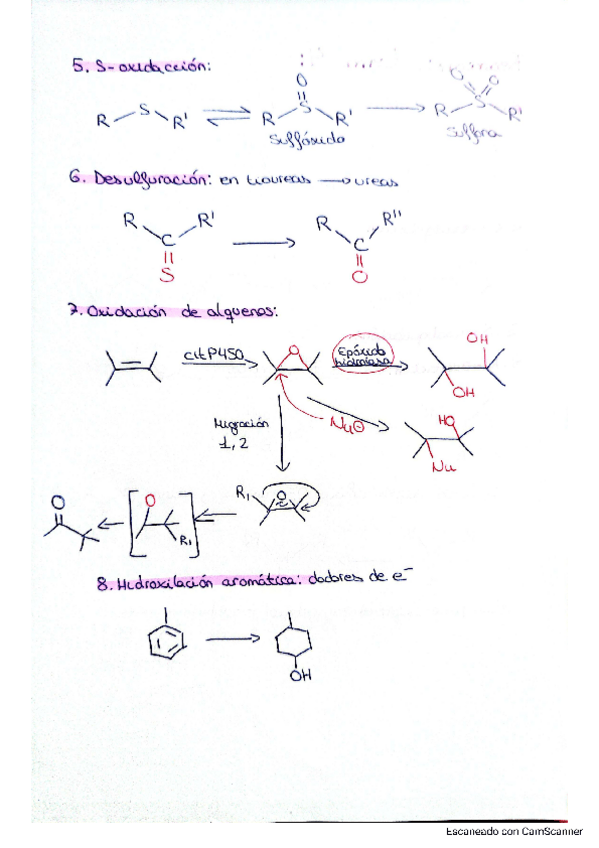 5. S-oxidacción:
O
R S R' R S R' R S R'
O O
Sulfóxido Sulfona
6. Desulfuración: en tioureas → ureas
R R' R R''
C C
S O
7. Oxidación de alquenos:
citP450 O Epóxido hidrolasa OH
OH
Migración 1,2
Nu⊖
HO
Nu
O O R1 O
R1
8. Hidroxilación aromática: dadores de e⁻
OH
Escaneado con CamScanner